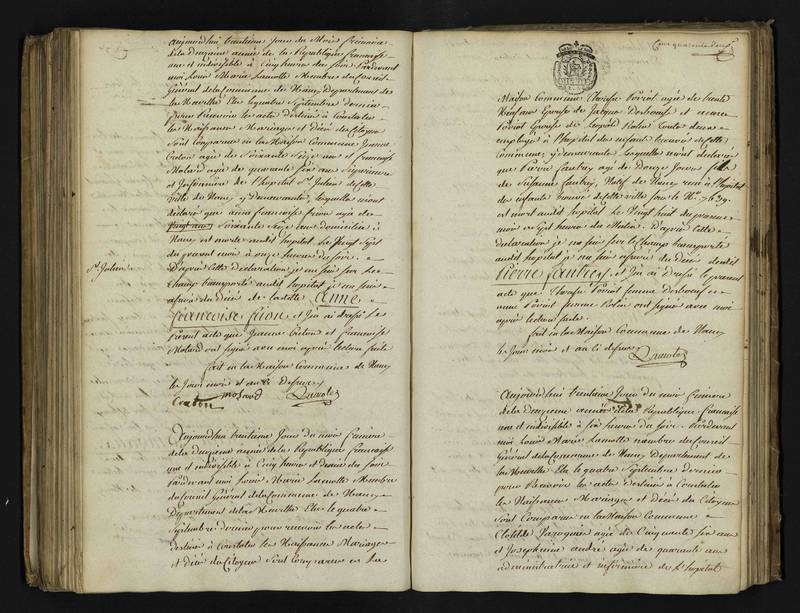 aujourd'hui trentieme Jour du Mois frimaire
de la deuxieme année de la Republique francaise
une et indivisible a Cinq heures du soir Pardevant
moi Louis Marie Lamotte Membre du Conseil
General de la Commune de Nancy Departement de
la Meurthe Elu le quatre Septembre dernier
pour recevoir les actes destinés a Constater
les Naissances Mariages et Décès des Citoyens
Sont Comparus en la Maison Commune Jeanne
Creton agée de Soixante Seize ans et francoise
Molard agée de quarante Six ans Superieure
et Infirmiere de l'hopital St Julien de cette
ville de Nancy y Demeurante Lesquelles mont
déclaré que anne francoise frion agée de
Soixante Seize ans domiciliée a
Nancy est morte audit hopital Le Vingt Sept
du present mois a onze heures du soir.
D'apres Cette Declaration je me suis sur Le
Champ transporté audit hopital je me suis
assuré du Décès de ladite Anne
francoise frion et J'en ai dressé Le
Present acte que Jeanne Creton et francoise
Molard ont Signé avec moi apres lecture faite
fait en la Maison Commune de Nancy
les Jour mois et an ci Dessus
Creton molard Lamotte
St Julien
Aujourd'hui trentieme Jour du mois frimaire
de la deuxieme année de la Republique francaise
une et indivisible a Cinq heures et demie du soir
Pardevant moi Louis Marie Lamotte Membre
du Conseil General de la Commune de Nancy
Departement de la Meurthe Elu le quatre
Septembre dernier pour recevoir les actes
destinés a Constater les Naissances Mariages
et Décès des Citoyens Sont Comparus en la
Maison Commune Therese Poirot agée de trente
ans Epouse de Jacques Dorbeuf et anne
Poirot Epouse de Leopold Colin toutes deux
employées a l'hopital des enfants trouvés de cette
Commune, y demeurante Lesquelles mont déclaré
que Pierre fautrey agé de Douze Jours fils
de Susanne fautrey, Natif de Nancy remis a l'hopital
des enfants trouvés de cette ville sous le No.
est mort audit hopital Le Vingt huit du present
mois a Sept heures du Matin. D'apres Cette
declaration je me suis sur le Champ transporté
audit hopital je me suis assuré du décès dudit
Pierre fautrey, et J'en ai dressé le present
acte que Therese Poirot femme Dorbeuf et
anne Poirot femme Colin ont signé avec moi
apres lecture faite.
fait en la Maison Commune de Nancy
les Jour mois et an ci dessus
Lamotte
Aujourd'hui trentieme Jour du mois frimaire
de la deuxieme année de la Republique francaise
une et indivisible a Six heures du soir. Pardevant
moi Louis Marie Lamotte membre du Conseil
General de la Commune de Nancy Departement de
la Meurthe Elu le quatre Septembre dernier
pour Recevoir les actes destinés a Constater
les Naissances Mariages et Décès des Citoyens
Sont Comparus en la Maison Commune
Clotilde agée de Cinquante Six ans
et Josephine andré agée de quarante ans
administratrice et infirmiere de l'hopital